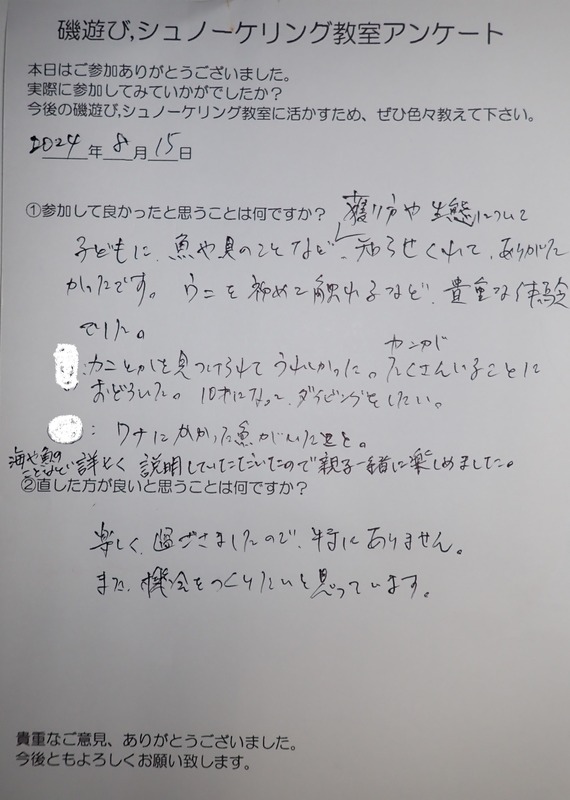 磯遊び,シュノーケリング教室アンケート
本日はご参加ありがとうございました。
実際に参加してみていかがでしたか？
今後の磯遊び,シュノーケリング教室に活かすため、ぜひ色々教えて下さい。
2024年8月15日
①参加して良かったと思うことは何ですか？ 獲り方や生態について
子どもに、魚や貝のことなど、知らせくれて、ありがた
かったです。ウニを初めて触れるなど、貴重な体験
でした。
カンガ
:カニとかを見つけられてうれしかった。たくさんいることに
おどろいた。10才になって、ダイビングをしたい。
:ワナにかかった魚がいたこと。
海や魚の
ことなど詳しく説明していただいたので親子一緒に楽しめました。
②直した方が良いと思うことは何ですか？
楽しく、過ごさましたので、特にありません。
また、機会をつくりたいと思っています。
貴重なご意見、ありがとうございました。
今後ともよろしくお願い致します。